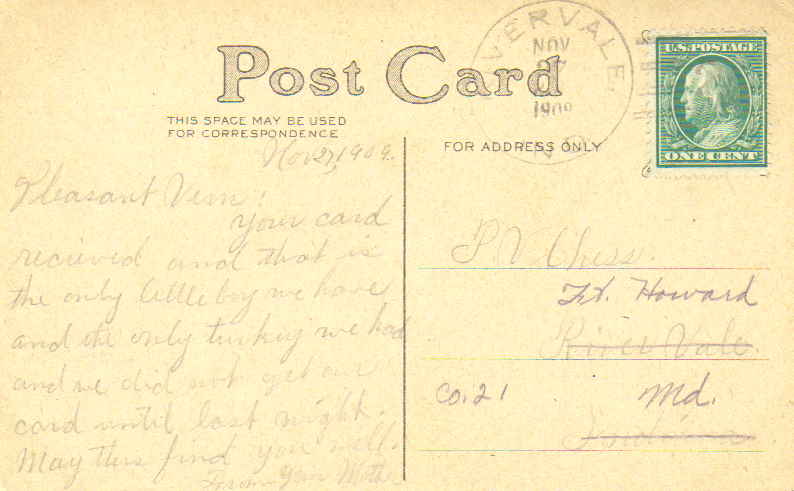 Post Card
VERVALE,
NOV
27
1909
U.S. POSTAGE
ONE CENT
THIS SPACE MAY BE USED
FOR CORRESPONDENCE
FOR ADDRESS ONLY
Nov 27, 1909.
Pleasant Vern:
Your card
recieved and that is
the only little boy we have
and the only turkey we had
and we did not get our
card until last night.
May this find you well.
From Your Mother
P V Chess.
Ft. Howard
River Vale.
Co. 21 Md.
Indiana